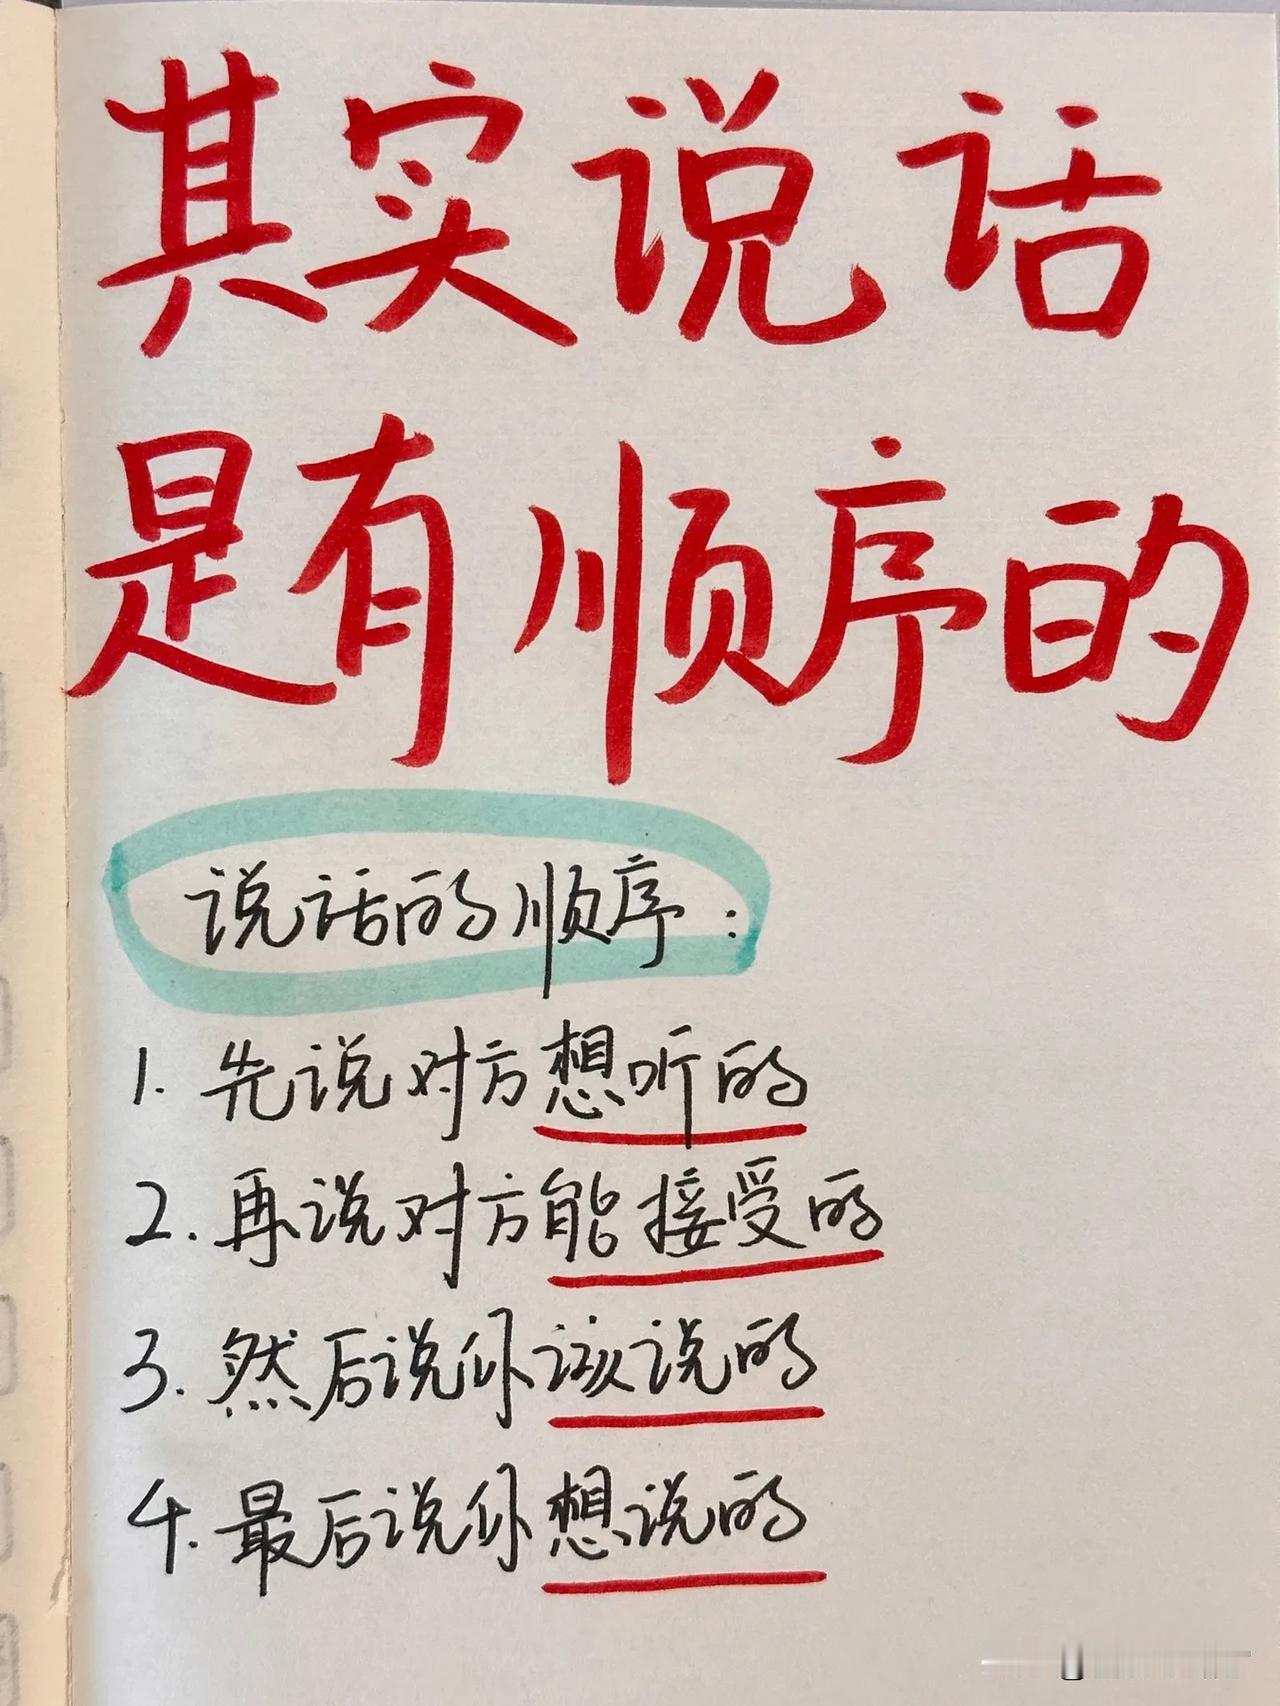 其实说话
是有顺序的
说话的顺序：
1. 先说对方想听的
2. 再说对方能接受的
3. 然后说你该说的
4. 最后说你想说的